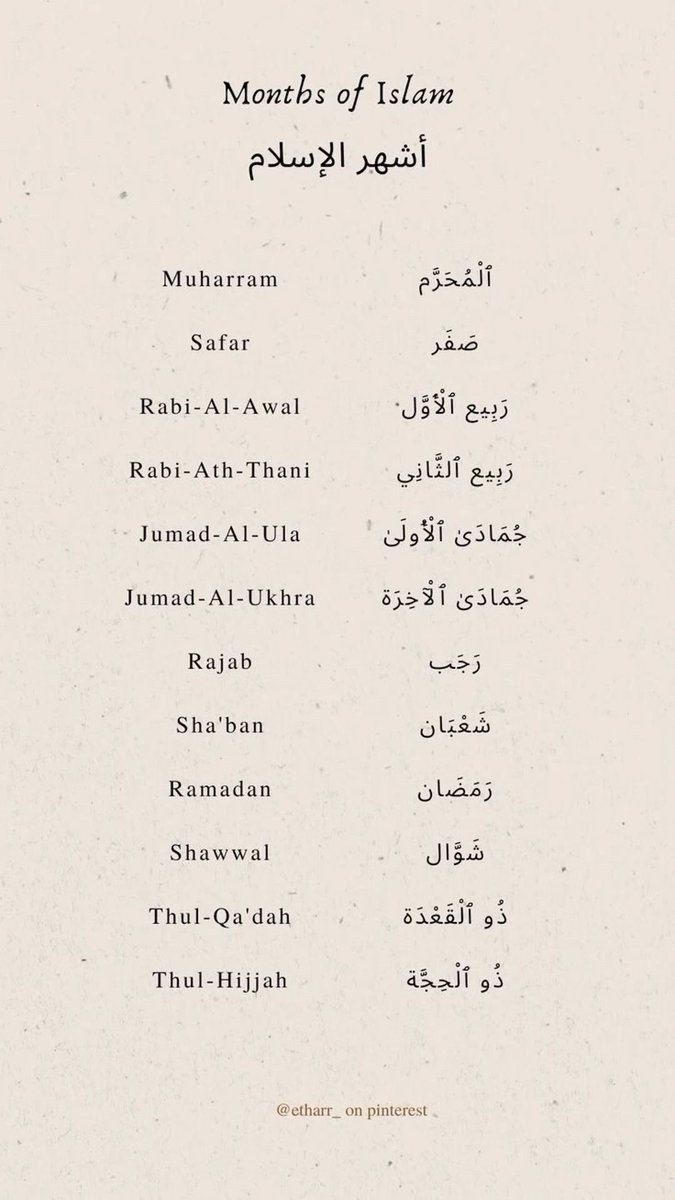 Months of Islam
أشهر الإسلام
Muharram ٱلْمُحَرَّم
Safar صَفَر
Rabi-Al-Awal رَبِيع ٱلْأَوَّل
Rabi-Ath-Thani رَبِيع ٱلثَّانِي
Jumad-Al-Ula جُمَادَىٰ ٱلْأُولَىٰ
Jumad-Al-Ukhra جُمَادَىٰ ٱلْآخِرَة
Rajab رَجَب
Sha'ban شَعْبَان
Ramadan رَمَضَان
Shawwal شَوَّال
Thul-Qa'dah ذُو ٱلْقَعْدَة
Thul-Hijjah ذُو ٱلْحِجَّة
@etharr_ on pinterest